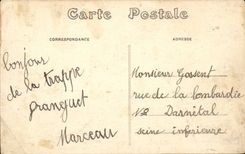 Carte Postale
CORRESPONDANCE
ADRESSE
bonjour
de la trappe
Marceau
Monsieur Gossent
rue de la lombardie
N2 Darnetal
seine inferieure